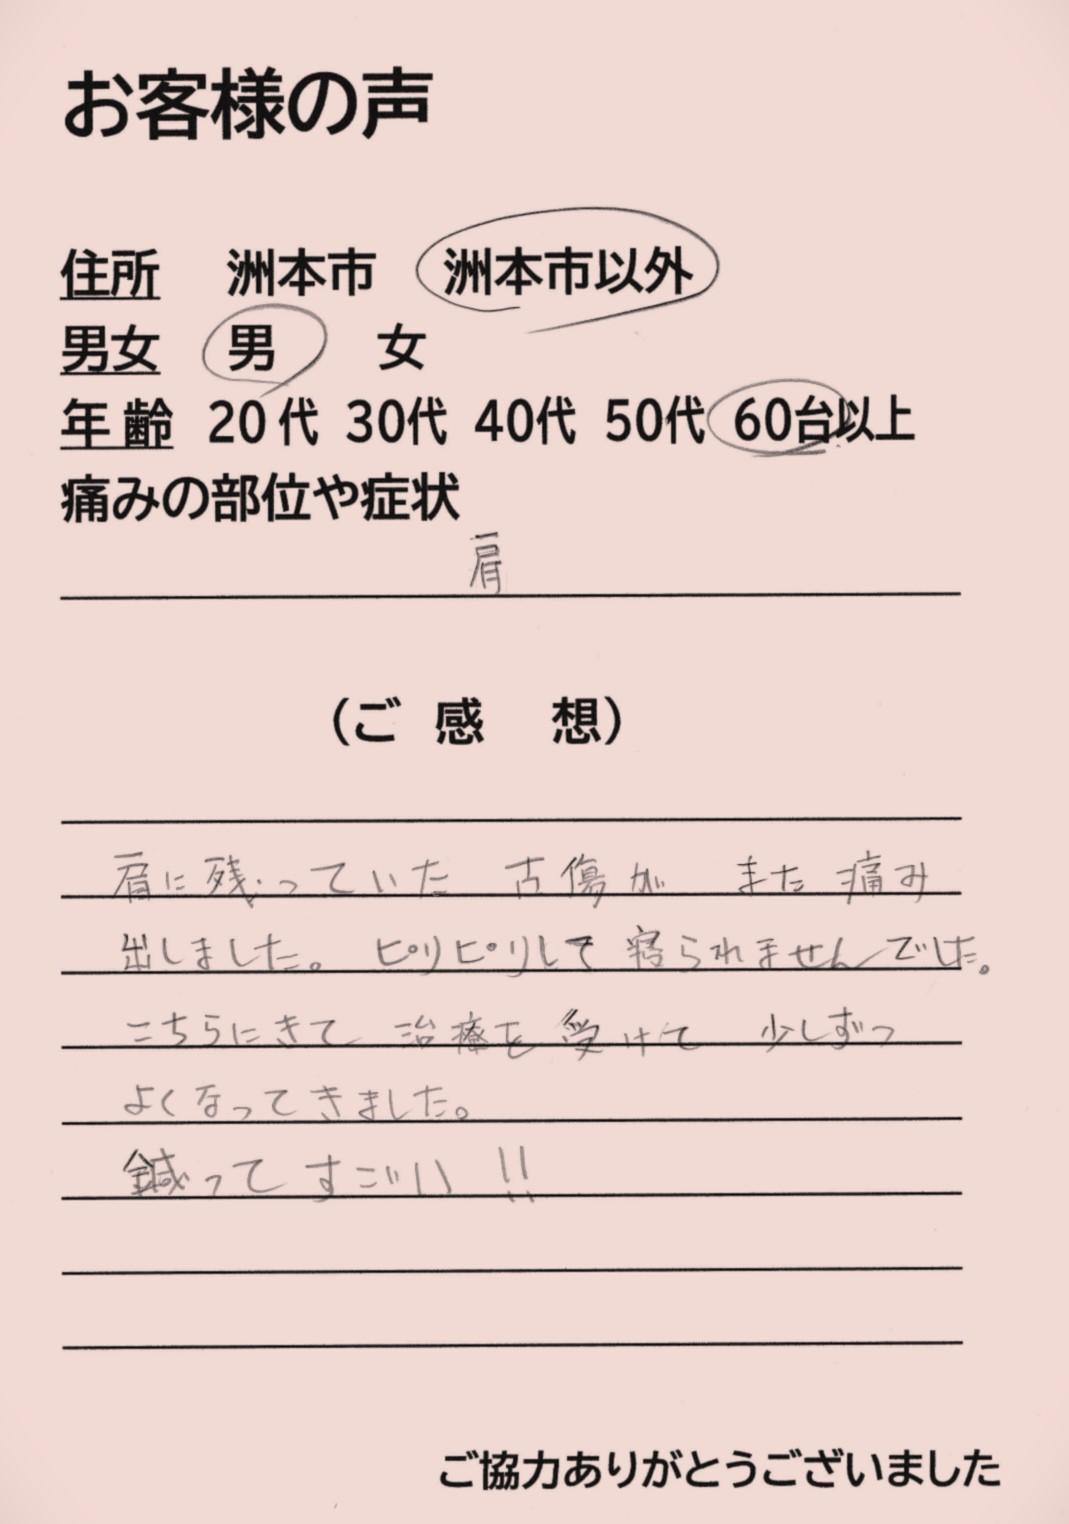 お客様の声
住所 洲本市 洲本市以外
男女 男 女
年齢 20代 30代 40代 50代 60台以上
痛みの部位や症状
肩
(ご感想)
肩に残っていた 古傷が また 痛み
出しました。 ピリピリして 寝られませんでした。
こちらにきて 治療を 受けて 少しずつ
よくなってきました。
鍼って すごい !!
ご協力ありがとうございました